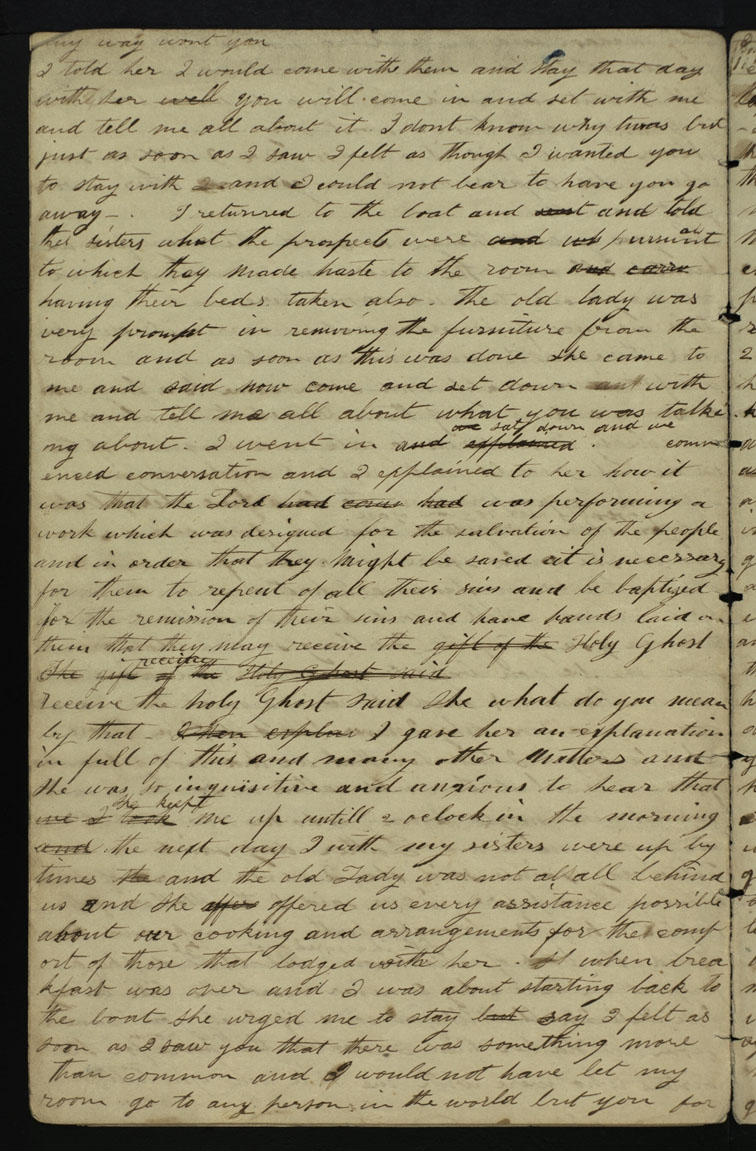 my way wont you
I told her I would come with them and stay that day
with her well you will come in and set with me
and tell me all about it I dont know why twas but
just as soon as I saw I felt as though I wanted you
to stay with and I could not bear to have you go
away — . I returned to the boat and sent and told
the sisters what the prospects were and was pursuant
to which they made haste to the room and carr
having their beds taken also. The old lady was
very prompt in removing the furniture from the
room and as soon as this was done she came to
me and said now come and set down with
me and tell me all about what you was talki
ng about. I went in and explained we sat down and we comm
enced conversation and I explained to her how it
was that the Lord had had was performing a
work which was designed for the salvation of the people
and in order that they might be saved it is necessary
for them to repent of all their sins and be baptized
for the remission of their sins and have hands laid on
them that they may receive the gift of the Holy Ghost
She gift receive of the Holy Ghost said
receive the holy Ghost said she what do you mean
by that — I then explai I gave her an explanation
in full of this and many other matters and
she was so inquisitive and anxious to hear that
we I took she kept me up untill 2 oclock in the morning
and the next day I with my sisters were up by
times the and the old Lady was not at all behind
us and she offer offered us every assistance possible
about our cooking and arrangements for the comf
ort of those that lodged with her. when brea
kfast was over and I was about starting back to
the boat she urged me to stay but say I felt as
soon as I saw you that there was something more
than common and I would not have let my
room go to any person in the world but you for